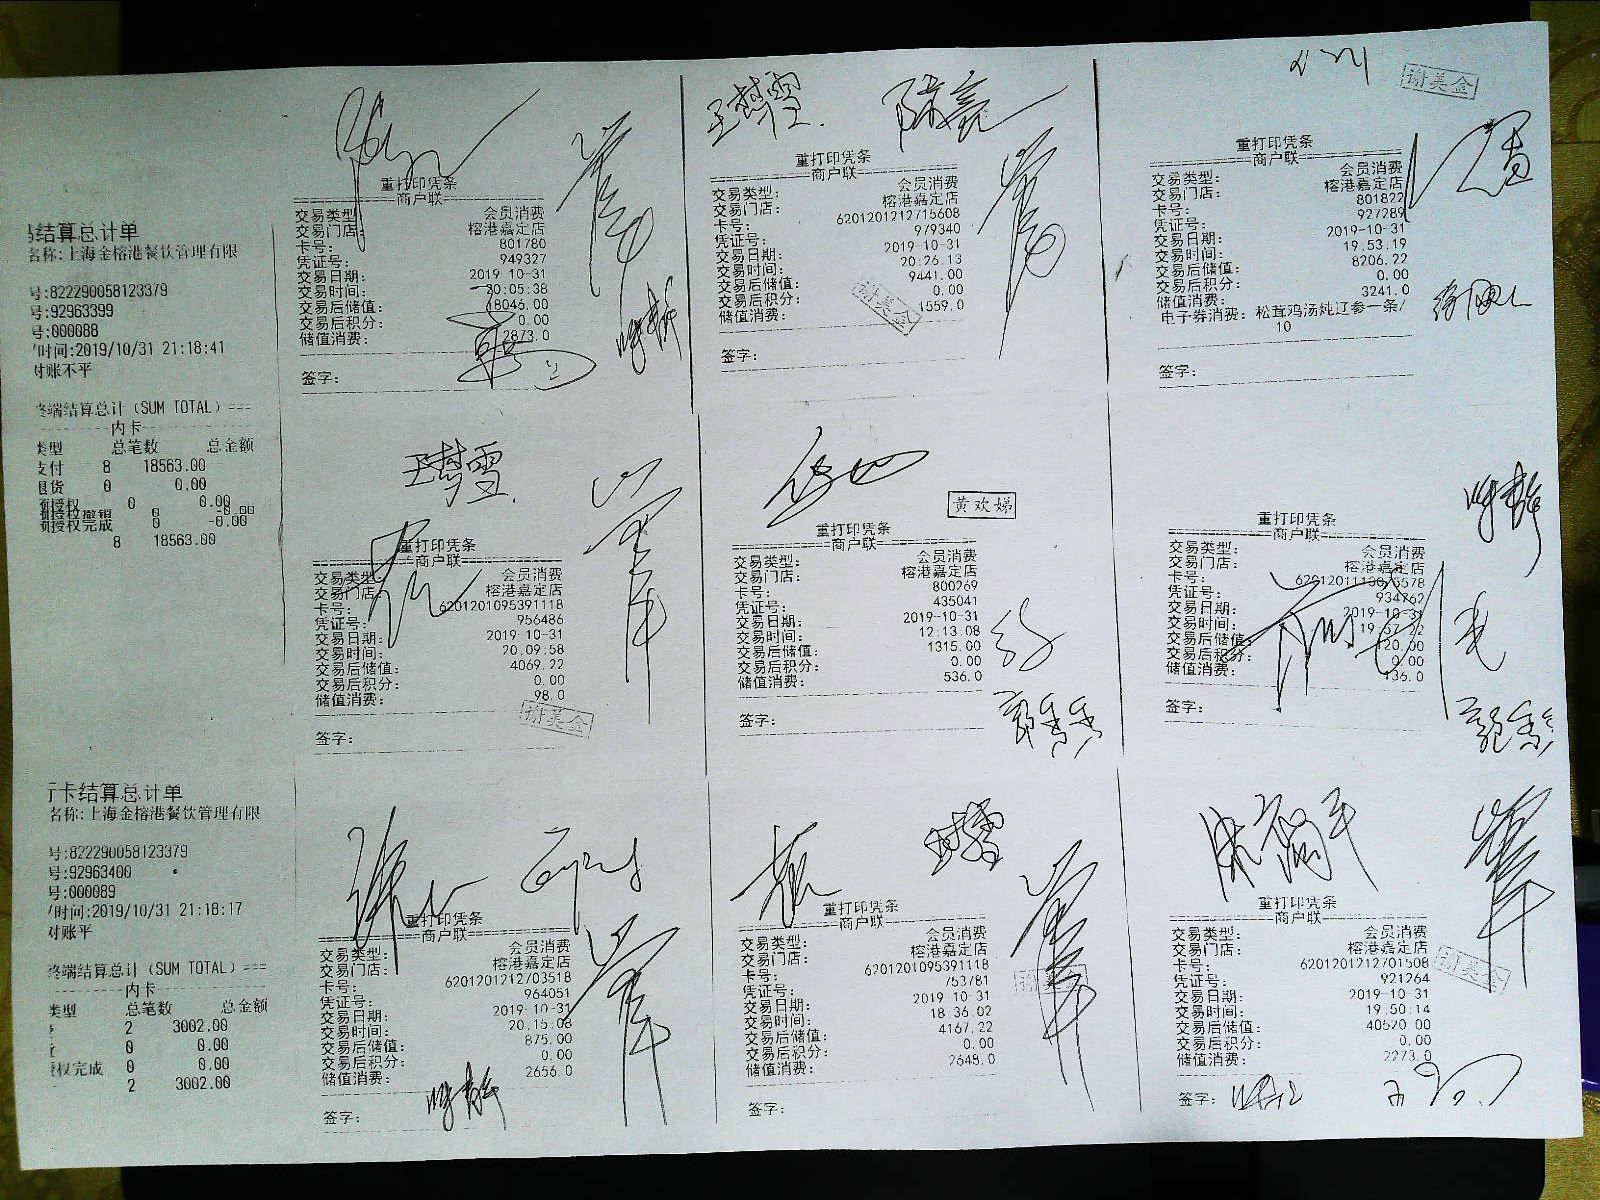 结算总计单
名称:上海金榕港餐饮管理有限
号:822290058123379
号:92963399
号:000088
时间:2019/10/31 21:18:41
对账不平
终端结算总计（SUM TOTAL）===
内卡
类型 总笔数 总金额
支付 8 18563.00
退货 0 0.00
预授权 0 0.00
预授权撤销 0 -0.00
预授权完成 0 -0.00
8 18563.00
行卡结算总计单
名称:上海金榕港餐饮管理有限
号:822290058123379
号:92963400
号:000089
时间:2019/10/31 21:18:17
对账平
终端结算总计（SUM TOTAL）===
内卡
类型 总笔数 总金额
2 3002.00
0 0.00
授权完成 0 0.00
2 3002.00
重打印凭条
商户联
交易类型: 会员消费
交易门店: 榕港嘉定店
卡号: 801780
凭证号: 949327
交易日期: 2019-10-31
交易时间: 20:05:38
交易后储值: 18046.00
交易后积分: 0.00
储值消费: 2873.0
签字:
王梦雪
陈亮
重打印凭条
商户联
交易类型: 会员消费
交易门店: 榕港嘉定店
卡号: 6201201212715608
凭证号: 979340
交易日期: 2019-10-31
交易时间: 20.26.13
交易后储值: 9441.00
交易后积分: 0.00
储值消费: 1559.0
谢美金
签字:
谢美金
重打印凭条
商户联
交易类型: 会员消费
交易门店: 榕港嘉定店
卡号: 801822
凭证号: 927289
交易日期: 2019-10-31
交易时间: 19.53.19
交易后储值: 8206.22
交易后积分: 0.00
储值消费: 3241.0
电子券消费: 松茸鸡汤炖辽参一条/
10
签字:
王梦雪
重打印凭条
商户联
交易类型: 会员消费
交易门店: 榕港嘉定店
卡号: 6201201095391118
凭证号: 956486
交易日期: 2019-10-31
交易时间: 20.09.58
交易后储值: 4069.22
交易后积分: 0.00
储值消费: 98.0
谢美金
签字:
黄欢娣
重打印凭条
商户联
交易类型: 会员消费
交易门店: 榕港嘉定店
卡号: 800269
凭证号: 435041
交易日期: 2019-10-31
交易时间: 12:13.08
交易后储值: 1315.00
交易后积分: 0.00
储值消费: 536.0
签字:
重打印凭条
商户联
交易类型: 会员消费
交易门店: 榕港嘉定店
卡号:
凭证号: 934762
交易日期: 2019-10-31
交易时间: 19.57.22
交易后储值:
交易后积分: 0.00
储值消费: 136.0
签字:
重打印凭条
商户联
交易类型: 会员消费
交易门店: 榕港嘉定店
卡号: 6201201212703518
凭证号: 964051
交易日期: 2019-10-31
交易时间: 20.15.08
交易后储值: 875.00
交易后积分: 0.00
储值消费: 2656.0
签字:
重打印凭条
商户联
交易类型: 会员消费
交易门店: 榕港嘉定店
卡号: 6201201095391118
凭证号: 753781
交易日期: 2019-10-31
交易时间: 18.36.02
交易后储值: 4167.22
交易后积分: 0.00
储值消费: 2648.0
签字:
重打印凭条
商户联
交易类型: 会员消费
交易门店: 榕港嘉定店
卡号: 6201201212701508
凭证号: 921264
交易日期: 2019-10-31
交易时间: 19.50:14
交易后储值: 40520.00
交易后积分: 0.00
储值消费: 2273.0
谢美金
签字: